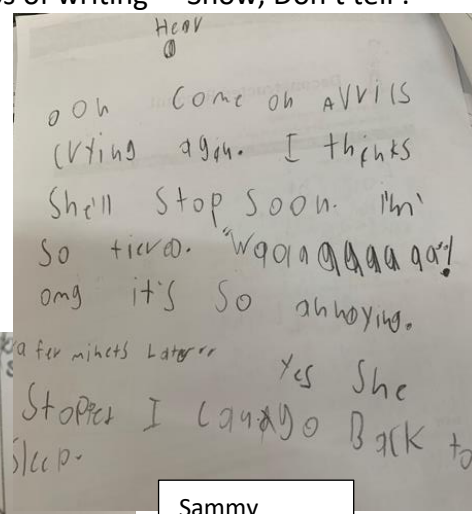 s of writing – "Show, Don't tell".
Hear
ooh come on AVVils
crying agan. I thinks
She'll Stop soon. I'm
so tiered. "Waaaaaaaa aa"!
omg it's so annoying.
a fer minets Later..
Yes She
Stopied I can go Back to
sleep.
Sammy